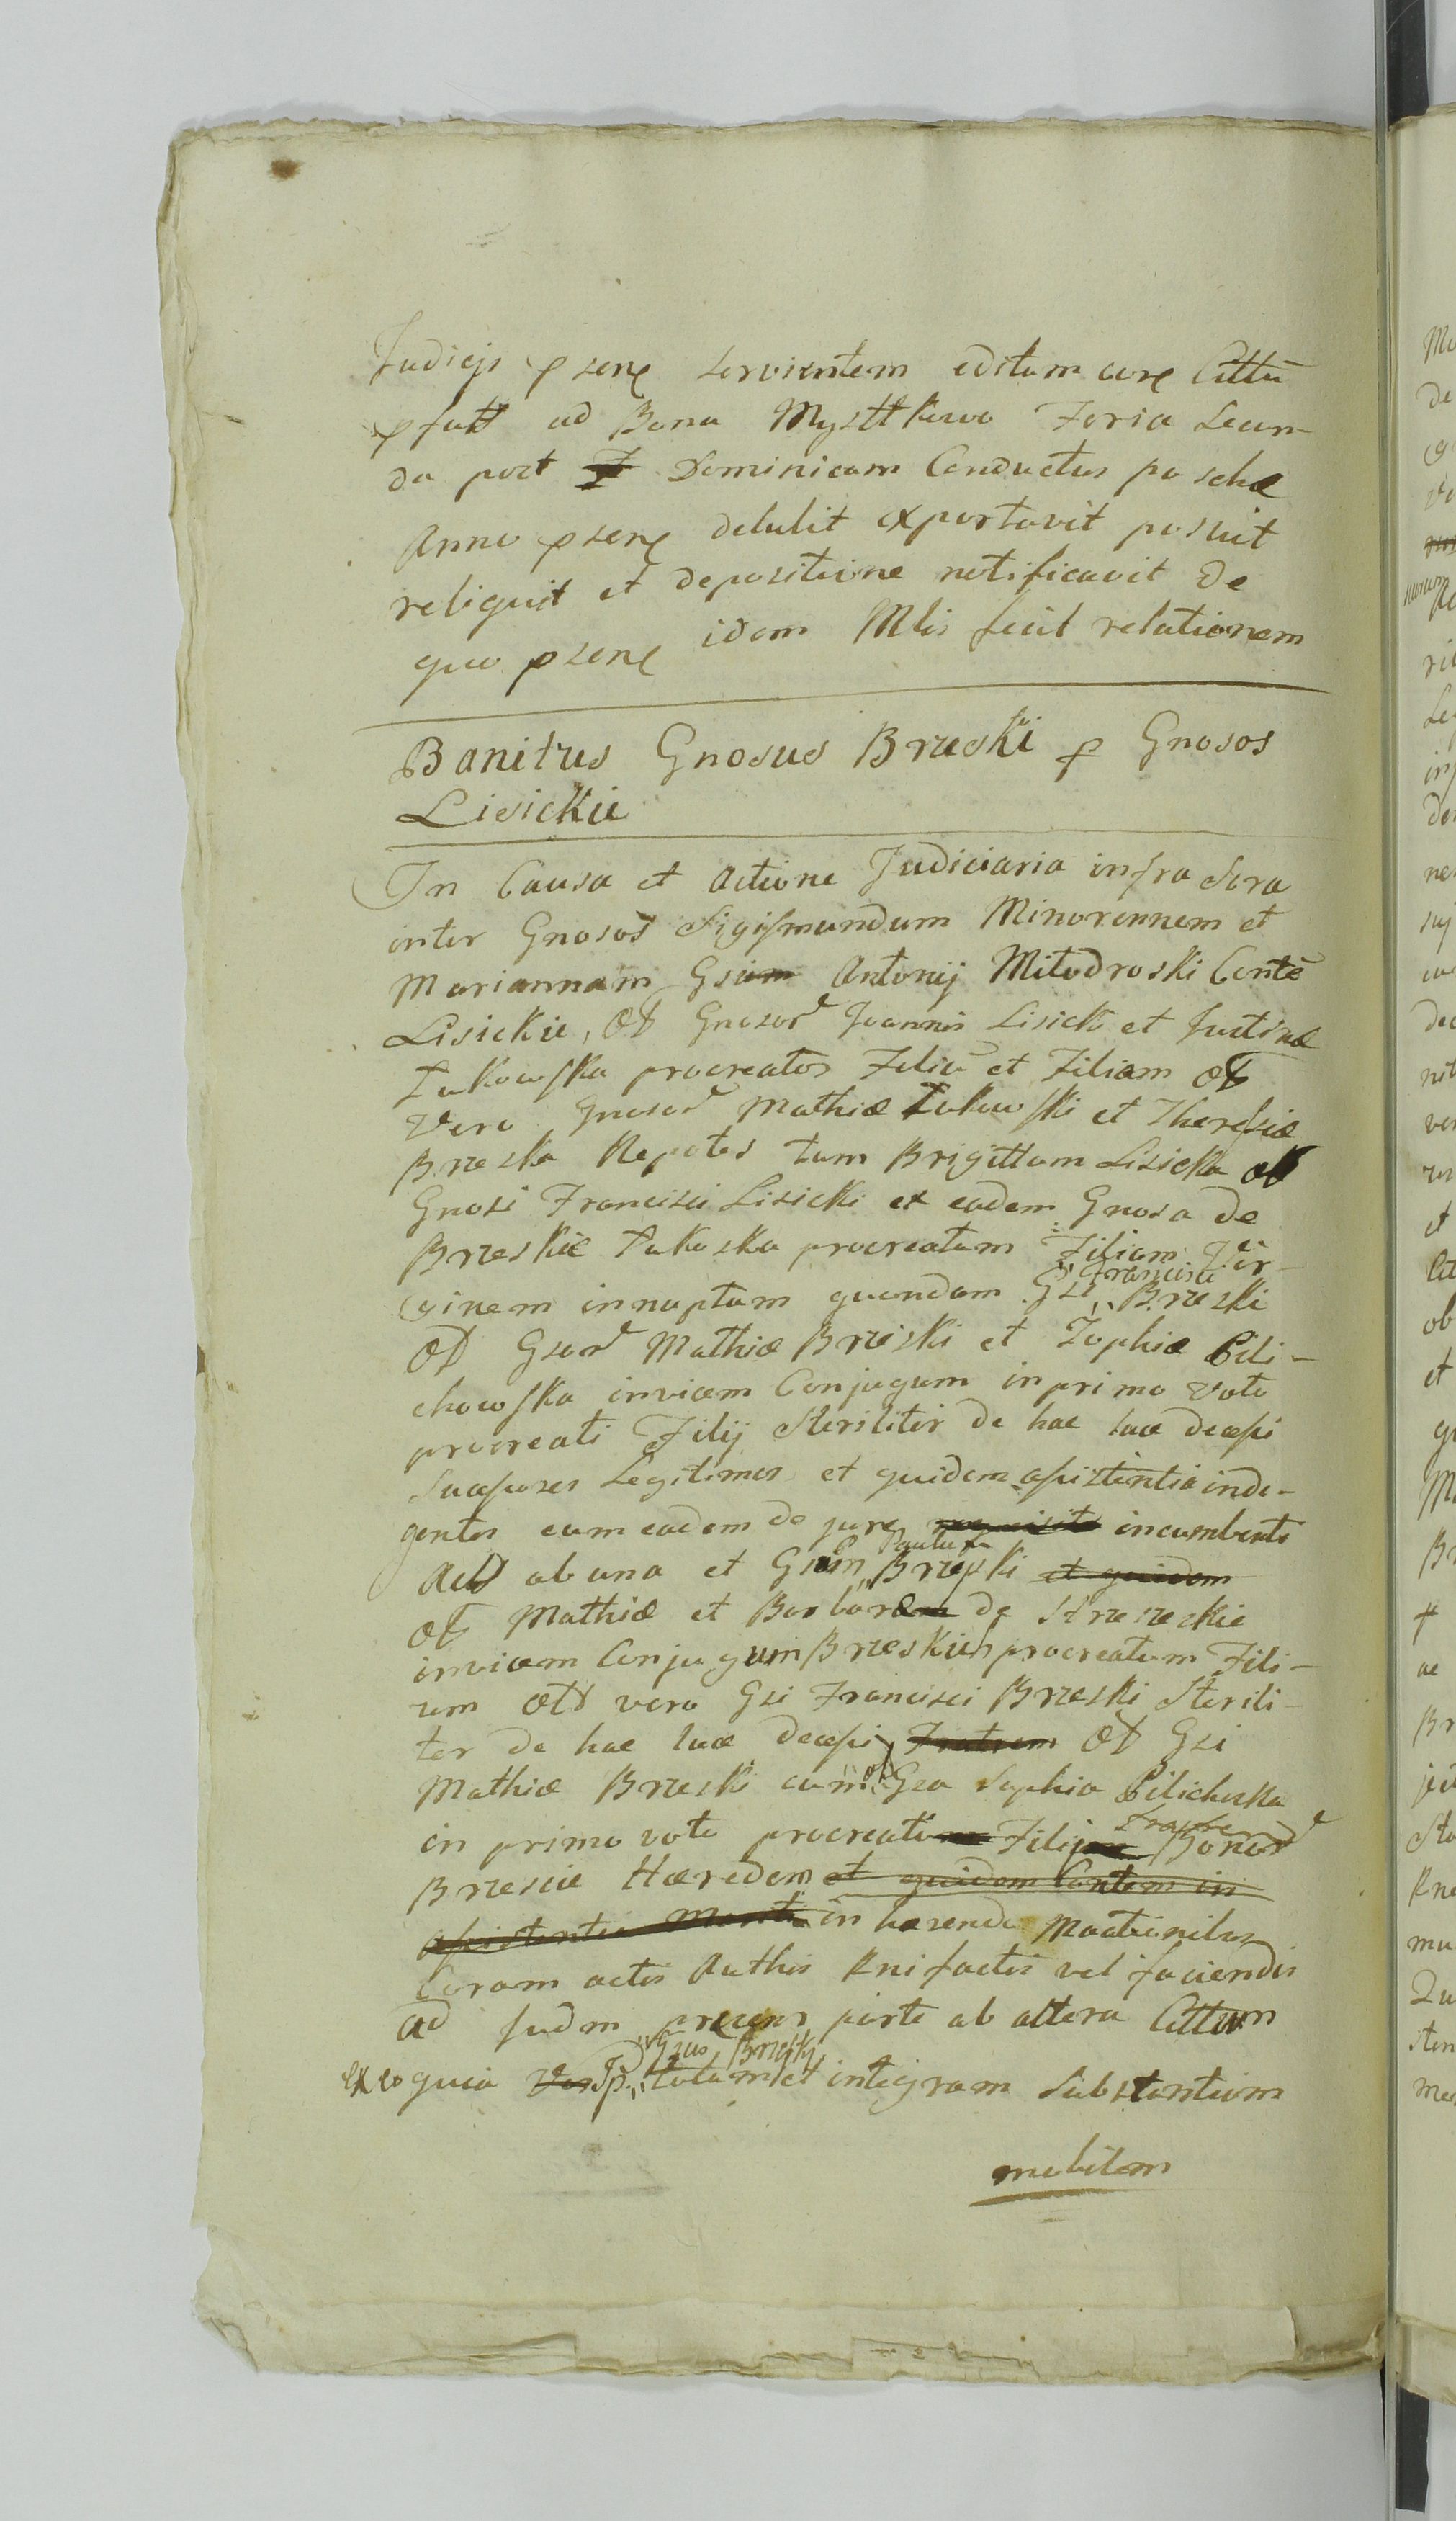 Judicys psens servientem editum core Cittũ
pfatt ad Bona Mysttkowo Feria Secun-
da post Dominicam Conductus paschæ
Anno psens detulit exportavit posuit
reliquit et depositione notificavit de
quo psens idem Mlis fecit relationem
Banitus Gnosus Brzeski p Gnosos
Lisickie
In Causa et actione Judiciaria infra Scra
inter Gnosos Sigismundum Minorennem et
Mariannam Gsi Antonij Mitodroski Contẽ
Lisickie, olt Gnosor Joannis Lisicki et Justinæ
Łukowska procreatos Filiũ et Filiam olt
vero Gnosor Mathiæ Łukowski et Theresiæ
Brzeska Nepotes tum Brigittam Lisicka olt
Gnosi Francisci Lisicki ex eadem Gnosa de
Brzeskie Łukoska procreatam Filiam Vir-
ginem innuptam quondam Gsi Francisci Brzeski
olt Gsor Mathiæ Brzeski et Zophiæ Pili-
chowska invicem Conjugum in primo voto
procreati Filij Steriliter de hac luce decessi
Successores Legitimos et quidem assistentia indi-
gentes cum eadem de jure requisita incumbente
Act ab una et Gsum Paulum Brzeski et quidem
olt Mathiæ et Barbaræ de Strzeszeskie
invicem Conjugum Brzeskich procreatum Fili-
um olt vero Gsi Francisci Brzeski Sterili-
ter de hac luce decessi Fratrem olt Gsi
Mathiæ Brzeski cum olt Gsa Sophia Pilichoska
in primo voto procreati Filij Fratre Bonor
Brzescie Hæredem et quidem Contem in
assistentia in hærendo Mactionibus
Coram actis Authis Rni factis vel faciendis
ad Judm præsens parte ab altera Cittum
ex eo quia Gsus Brzeski totam et integram Substantiam
mobilem